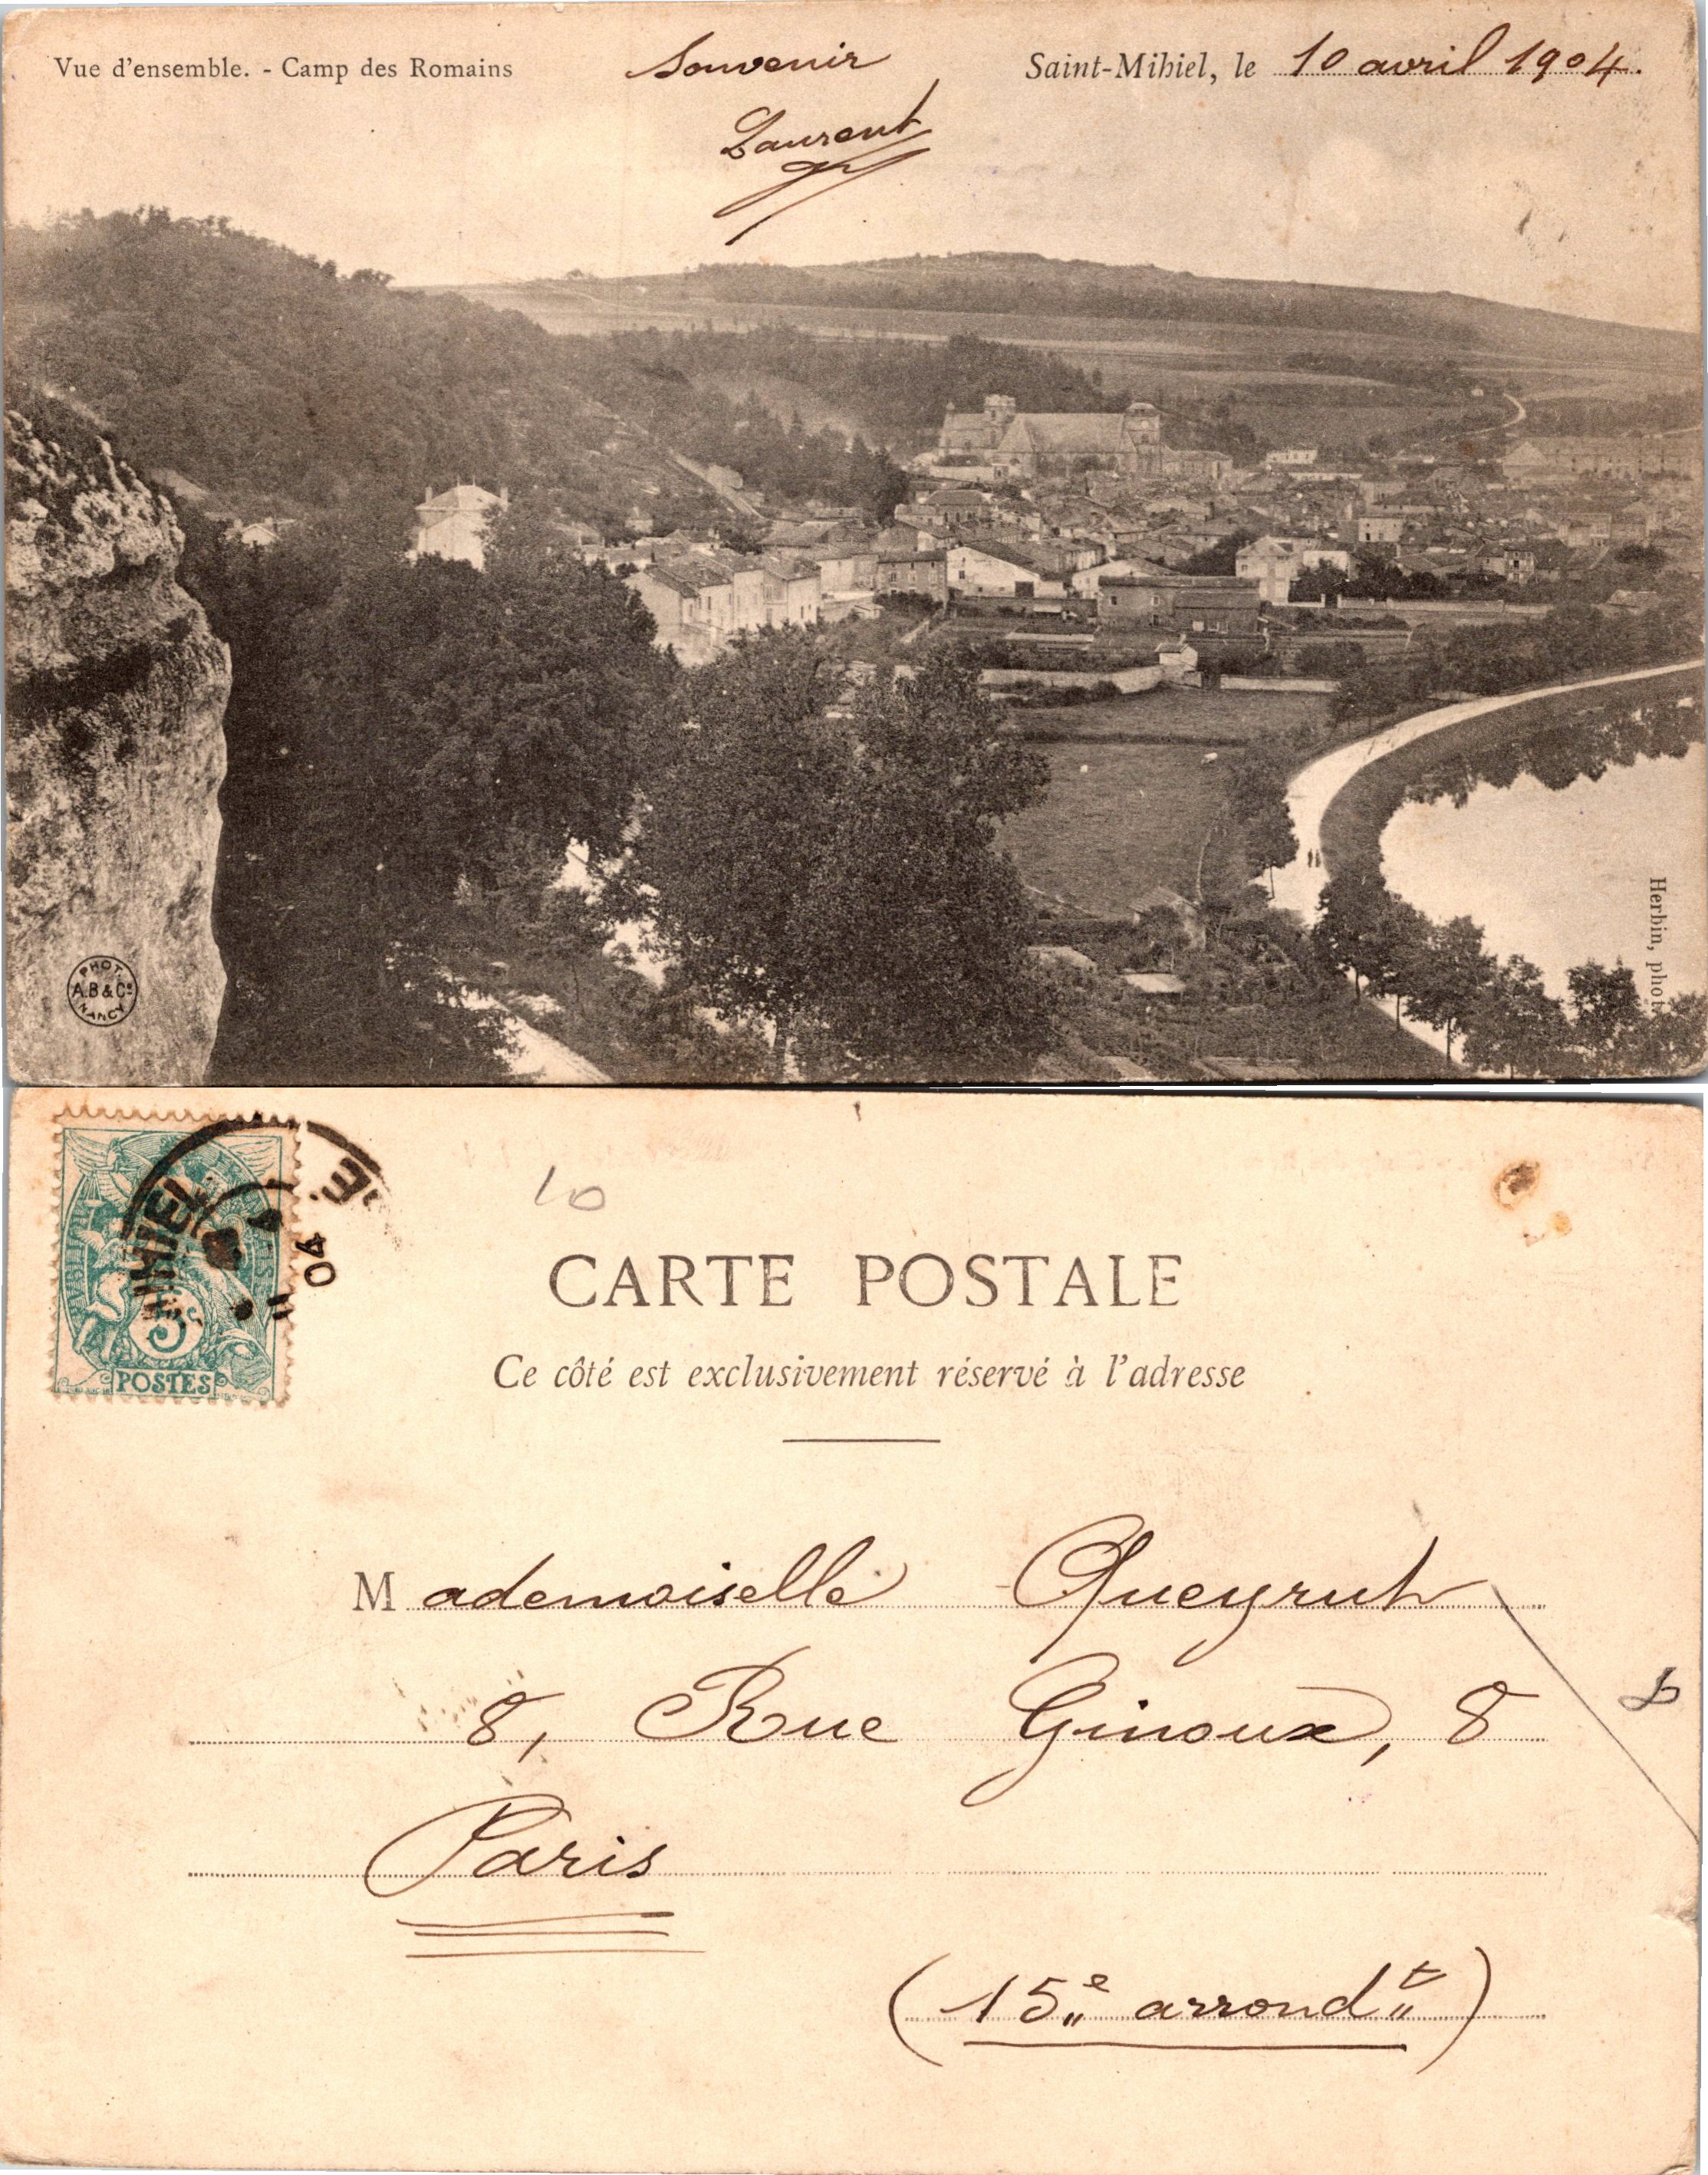 Vue d'ensemble. - Camp des Romains
Souvenir
Saint-Mihiel, le 10 avril 1904.
Laurent
PHOT.
A.B & Cie
NANCY
Herbin, phot
MIHIEL
04
5c
POSTES
10
CARTE POSTALE
Ce côté est exclusivement réservé à l'adresse
Mademoiselle Queyrut
8, Rue Ginoux, 8
Paris
(15e arrondt)